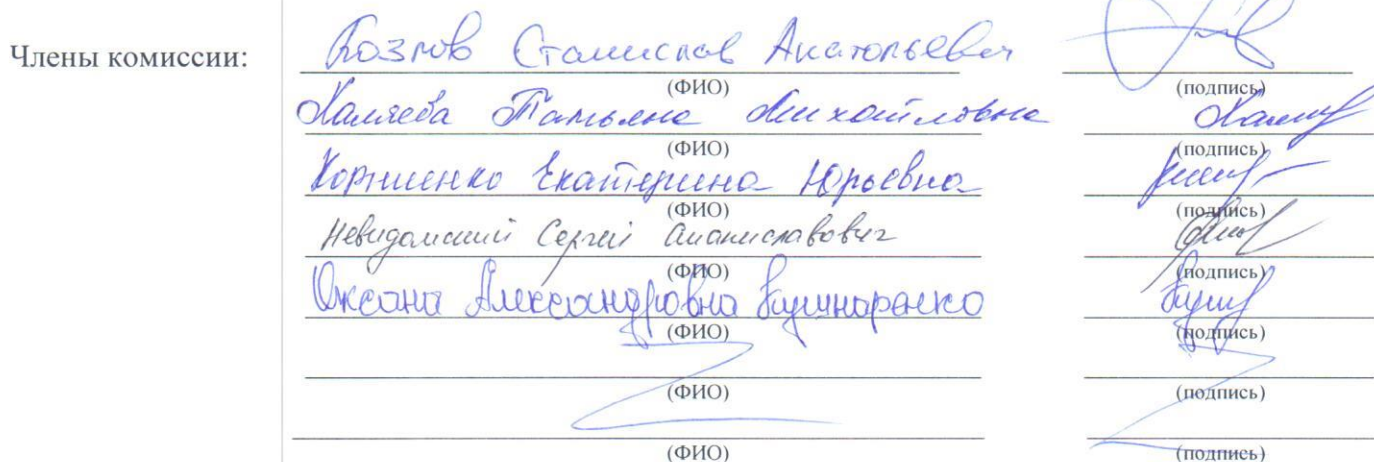 Члены комиссии: Козлов Станислав Анатольевич
(ФИО) (подпись)
Татьяна Михайловна
(ФИО) (подпись)
Корниенко Екатерина Юрьевна
(ФИО) (подпись)
Невидомский Сергей
(ФИО) (подпись)
Оксана Александровна Кушнаренко
(ФИО) (подпись)
(ФИО) (подпись)
(ФИО) (подпись)